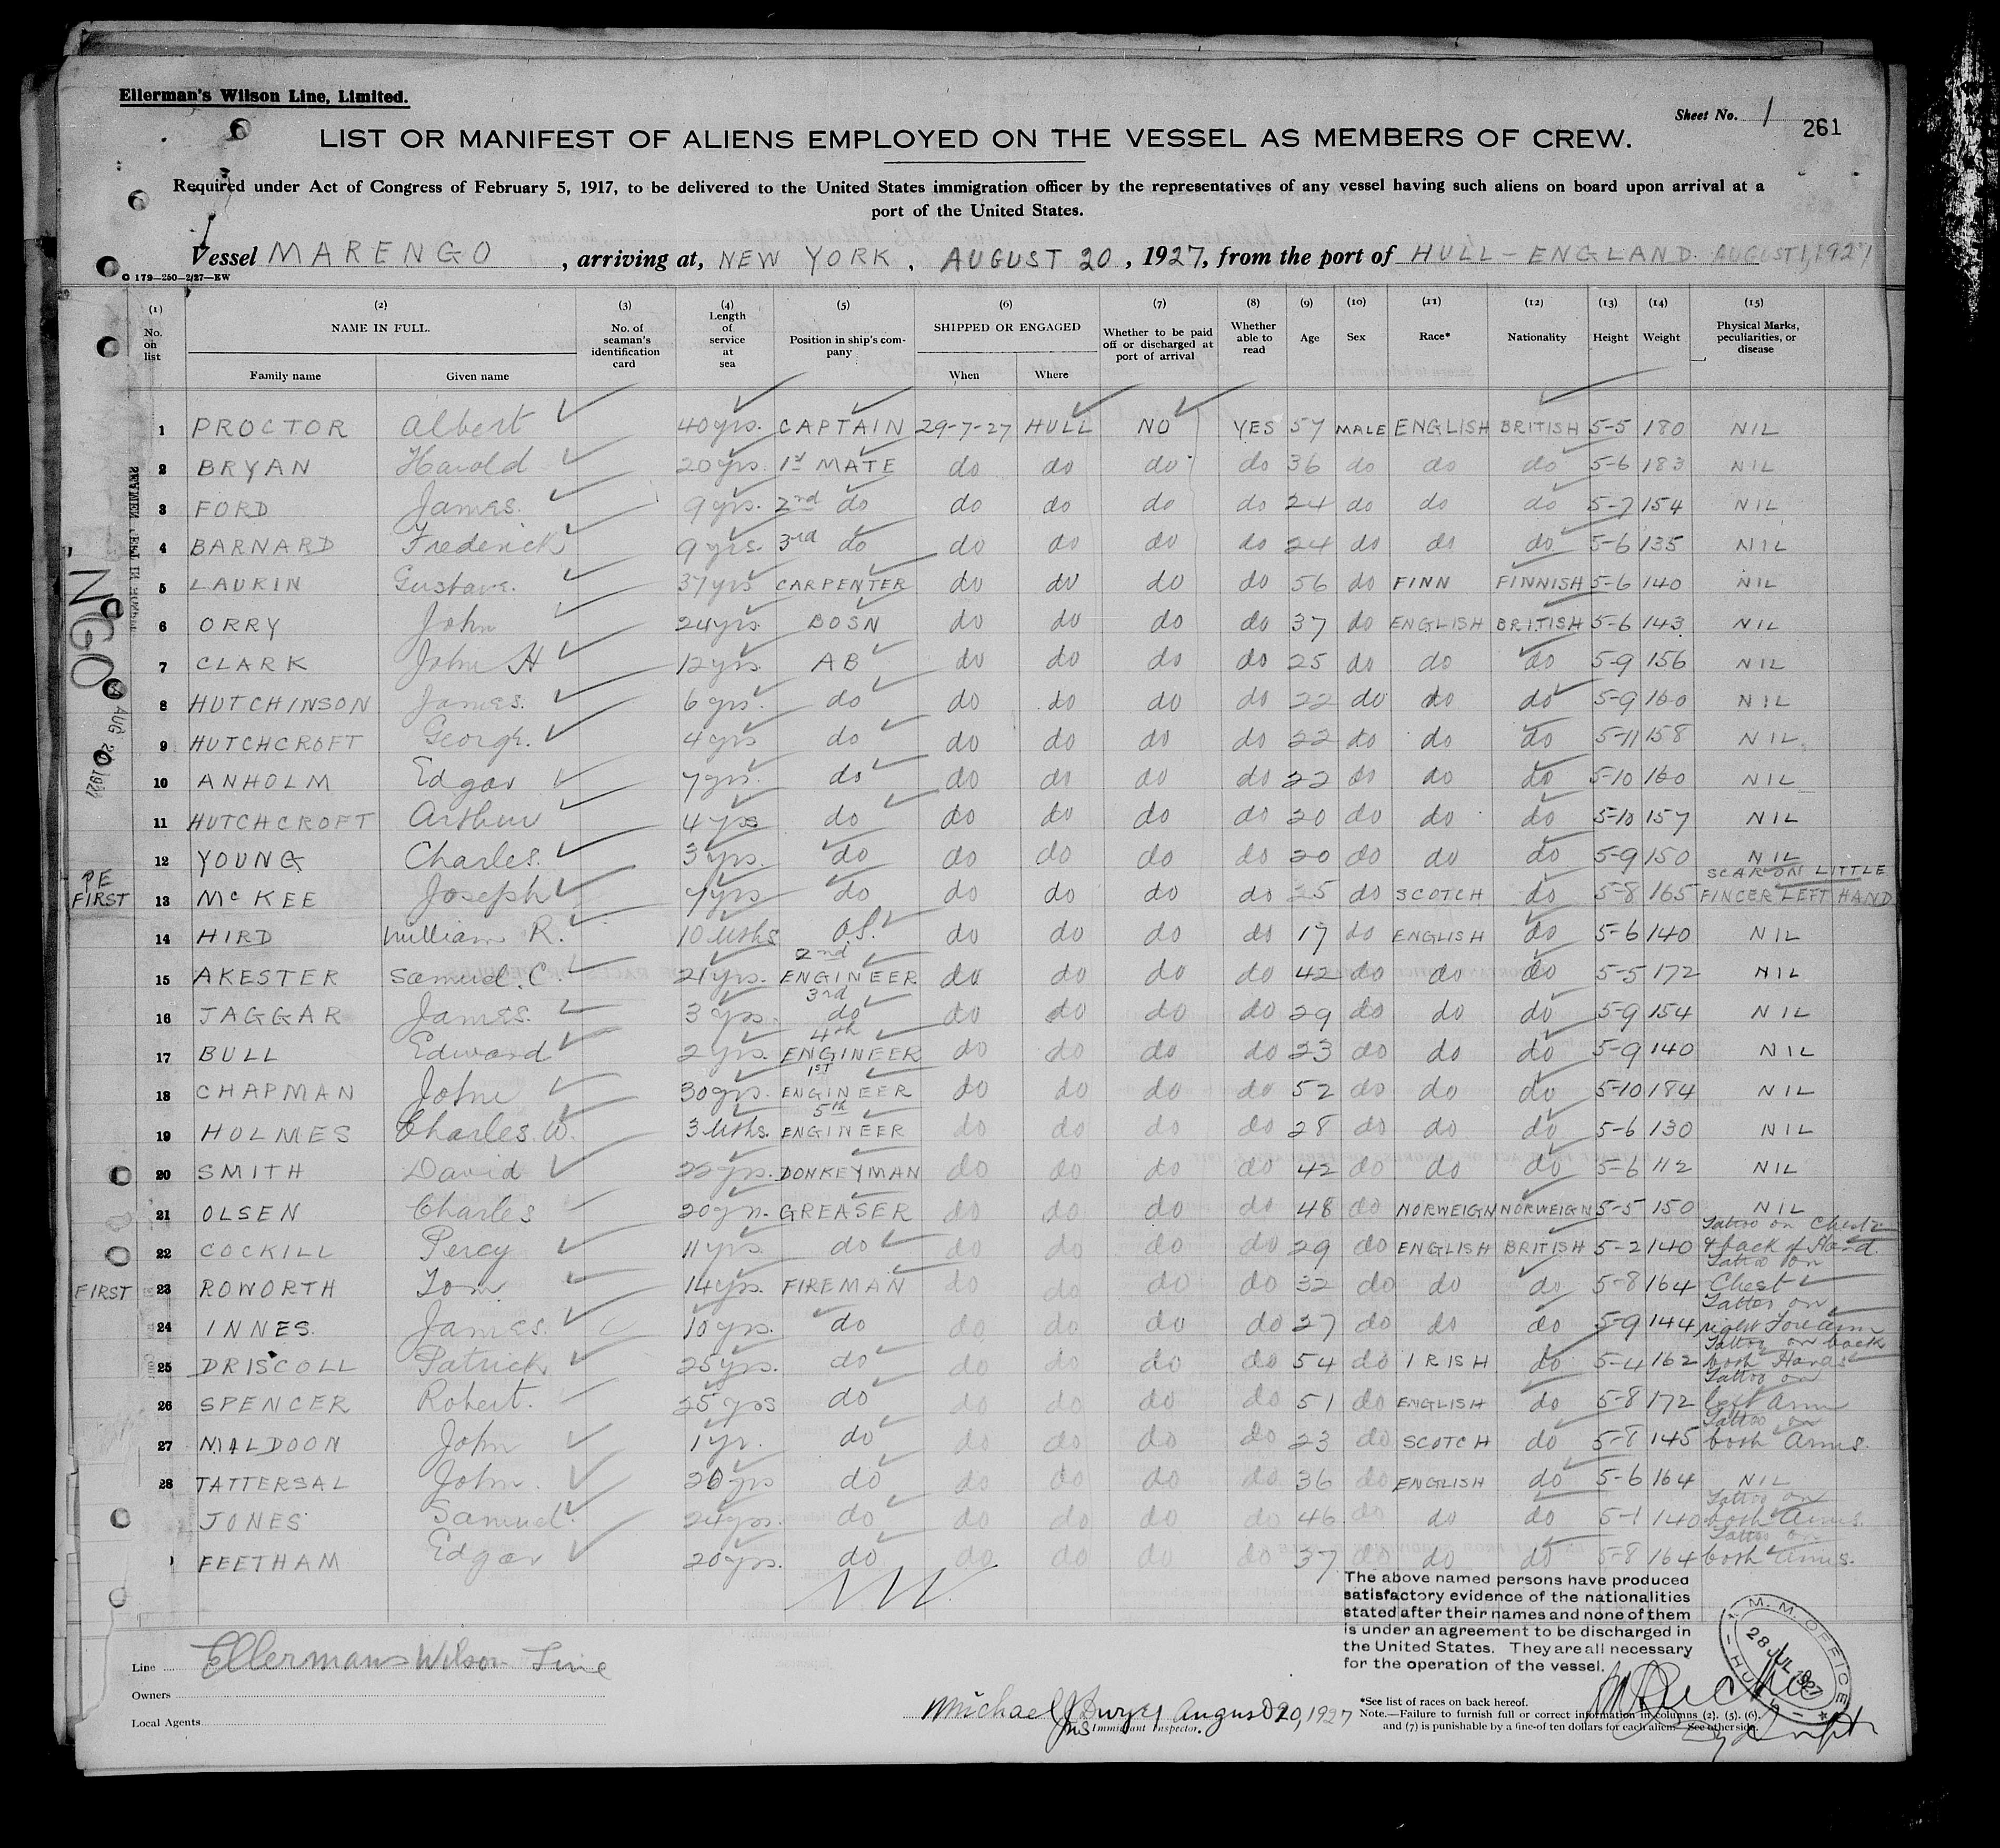 Ellerman's Wilson Line, Limited.
Sheet No. 1 261
LIST OR MANIFEST OF ALIENS EMPLOYED ON THE VESSEL AS MEMBERS OF CREW.
Required under Act of Congress of February 5, 1917, to be delivered to the United States immigration officer by the representatives of any vessel having such aliens on board upon arrival at a
port of the United States.
Vessel MARENGO, arriving at, NEW YORK, AUGUST 20, 1927, from the port of HULL - ENGLAND. AUGUST 1, 1927
G 179—250—2/27—EW
(1) No. on list (2) NAME IN FULL. Family name Given name (3) No. of seaman's identification card (4) Length of service at sea (5) Position in ship's company (6) SHIPPED OR ENGAGED When Where (7) Whether to be paid off or discharged at port of arrival (8) Whether able to read (9) Age (10) Sex (11) Race* (12) Nationality (13) Height (14) Weight (15) Physical Marks, peculiarities, or disease
1 PROCTOR Albert 40 yrs. CAPTAIN 29-7-27 HULL NO YES 57 MALE ENGLISH BRITISH 5-5 180 NIL
2 BRYAN Harold 20 yrs. 1st MATE do do do do 36 do do do 5-6 183 NIL
3 FORD James. 9 yrs. 2nd do do do do do 24 do do do 5-7 154 NIL
4 BARNARD Frederick 9 yrs. 3rd do do do do do 24 do do do 5-6 135 NIL
5 LAURIN Gustave. 37 yrs CARPENTER do do do do 56 do FINN FINNISH 5-6 140 NIL
6 ORRY John 24 yrs. BOSN do do do do 37 do ENGLISH BRITISH 5-6 143 NIL
7 CLARK John H 12 yrs. AB do do do do 25 do do do 5-9 156 NIL
8 HUTCHINSON James. 6 yrs. do do do do do 22 do do do 5-9 160 NIL
9 HUTCHCROFT George. 4 yrs do do do do do 22 do do do 5-11 158 NIL
10 ANHOLM Edgar 7 yrs. do do do do do 22 do do do 5-10 160 NIL
11 HUTCHCROFT Arthur 4 yrs do do do do do 20 do do do 5-10 157 NIL
12 YOUNG Charles. 3 yrs. do do do do do 20 do do do 5-9 150 NIL
PE FIRST 13 McKEE Joseph 7 yrs do do do do do 25 do SCOTCH do 5-8 165 SCAR ON LITTLE FINGER LEFT HAND
14 HIRD William R. 10 Mths O.S. do do do do 17 do ENGLISH do 5-6 140 NIL
15 AKESTER Samuel. C. 21 yrs. 2nd ENGINEER do do do do 42 do do do 5-5 172 NIL
16 JAGGAR James. 3 yrs. 3rd do do do do do 29 do do do 5-9 154 NIL
17 BULL Edward 2 yrs. 4th ENGINEER do do do do 23 do do do 5-9 140 NIL
18 CHAPMAN John 30 yrs. 1ST ENGINEER do do do do 52 do do do 5-10 184 NIL
19 HOLMES Charles. W. 3 Mths. 5th ENGINEER do do do do 28 do do do 5-6 130 NIL
20 SMITH David 22 yrs. DONKEYMAN do do do do 42 do do do 5-6 112 NIL
21 OLSEN Charles 20 yrs. GREASER do do do do 48 do NORWEIGN NORWEIGN 5-5 150 NIL
22 COCKILL Percy 11 yrs. do do do do do 29 do ENGLISH BRITISH 5-2 140 Tattoo on Chest & back of Hand.
FIRST 23 ROWORTH Tom 14 yrs. FIREMAN do do do do 32 do do do 5-8 164 Tattoo on Chest
24 INNES. James. 10 yrs. do do do do do 27 do do do 5-9 144 Tattoo on right Forearm
25 DRISCOLL Patrick 25 yrs. do do do do do 54 do IRISH do 5-4 162 Tattoo on back both Hands
26 SPENCER Robert. 25 yrs do do do do do 51 do ENGLISH do 5-8 172 Tattoo on left Arm
27 MALDOON John 1 yr. do do do do do 23 do SCOTCH do 5-8 145 Tattoo on both Arms.
28 TATTERSAL John. 20 yrs do do do do do 36 do ENGLISH do 5-6 164 NIL
JONES Samuel. 24 yrs. do do do do do 46 do do do 5-1 140 Tattoo on both Arms.
FEETHAM Edgar 20 yrs. do do do do do 37 do do do 5-8 164 Tattoo on both Arms.
The above named persons have produced
satisfactory evidence of the nationalities
stated after their names and none of them
is under an agreement to be discharged in
the United States. They are all necessary
for the operation of the vessel.
M. M. OFFICE
28 JUL 1927
HULL
Line Ellermans Wilson Line
Owners
Local Agents
Michael J August 20, 1927
Immigrant Inspector.
*See list of races on back hereof.
Note.—Failure to furnish full or correct information in columns (2), (5), (6),
and (7) is punishable by a fine of ten dollars for each alien. See other side.
NGO
AUG 20 1927